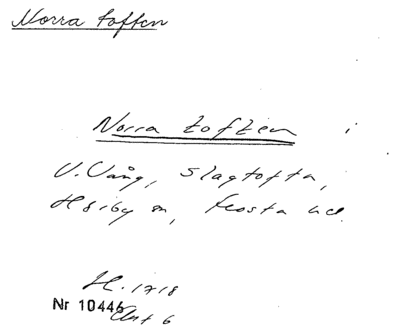 Norra toften
Norra toften i
V. Vång, Slagtofta,
Hörby sn, Frosta hd.
H. 1718
Nr 10446
Akt 6